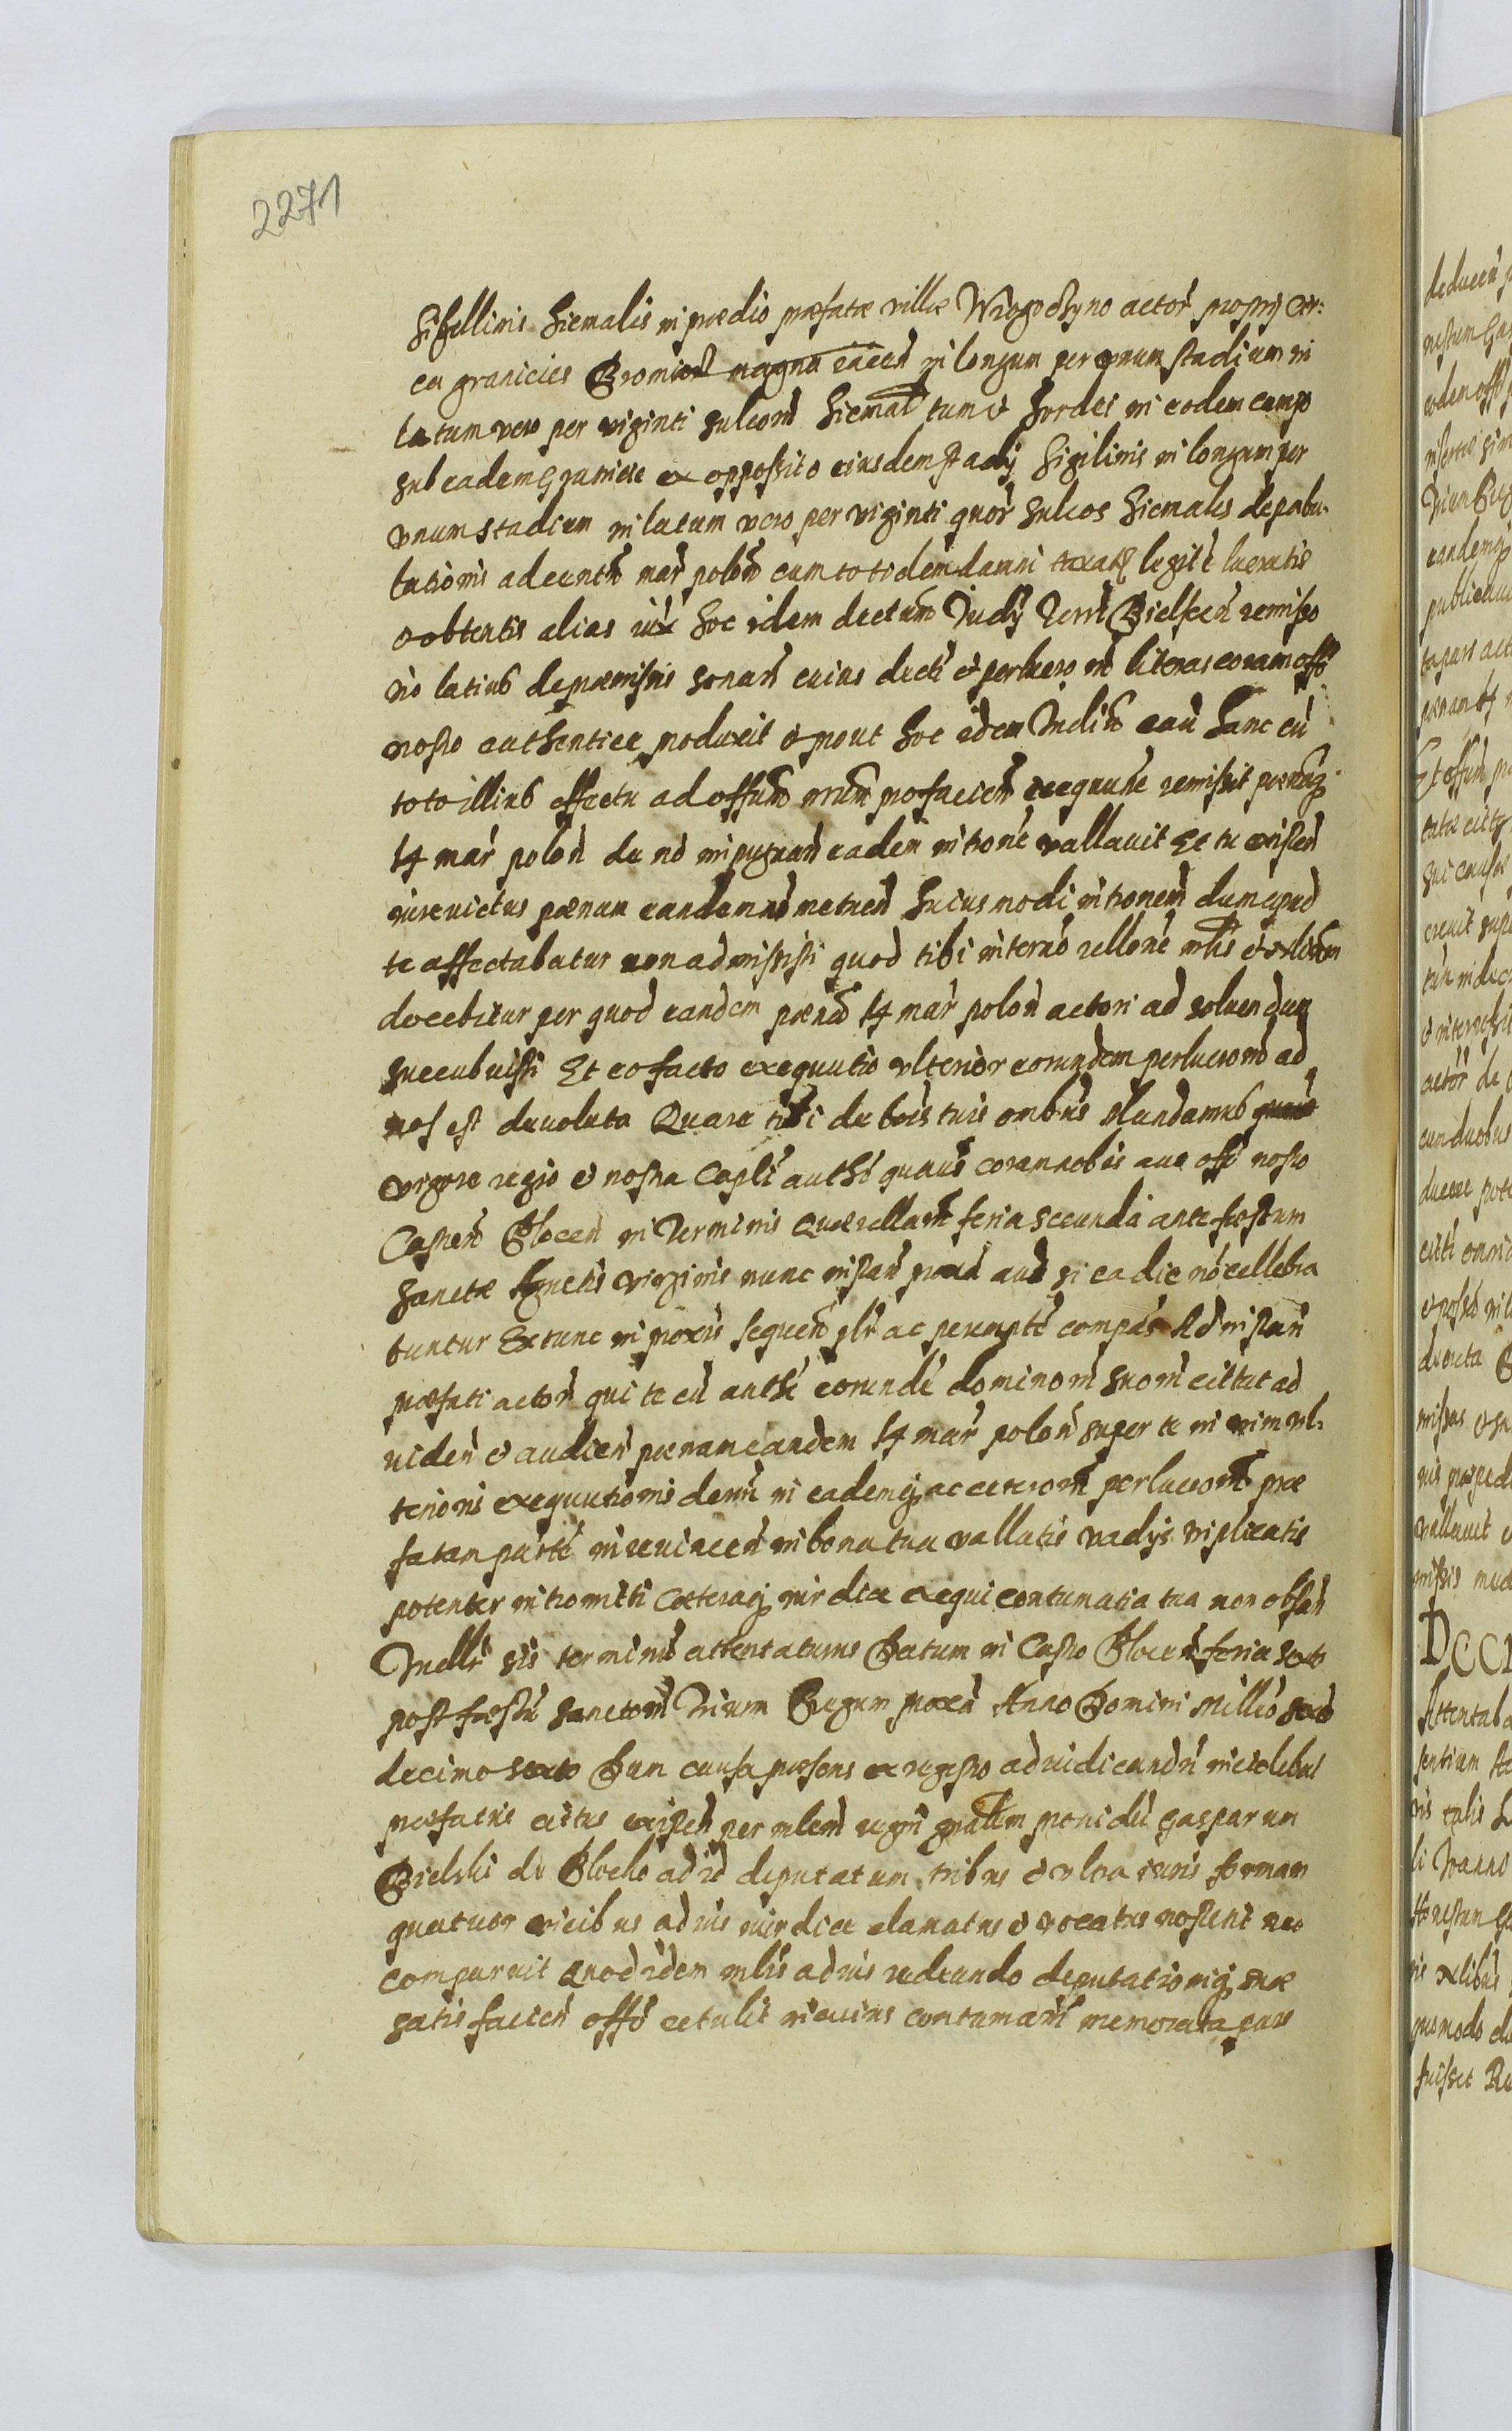 2271
Sigillinis hiemalis in prædio præfatæ villæ Wrogoczyno actor proprij cir:
ca granicies Bromierz magna iacen in longum per unum stadium in
latum vero per viginti sulcorum hiemal tum et hordei in eodem campo
sub eadem Granicie ex opposito eiusdem stadij Sigilinis in longum per
unum stadium in latum vero per viginti quor sulcos hiemales depabu-
lationis adcentum mar polon cum totidem damni taxatæ legite lucratis
obtentis alias iux hoc idem dectum Judij Terr Bielscen remisso
rio latius de præmissis sonan cuius decti et perlucro rm literas coram offo
nostro authentice produxit et prout hoc idem Judicium cau hanc cu
toto illius effectu ad offum nrum pro facien exequune remisit pænaq
14 mar polon de no impugnan eadem introne vallavit Et tu existen
iurevictus pænam eandem no metuen huiusmodi intronem dum apud
te affectabatur non admisisti quod tibi in terno rellone mlis et nlium
docebitur per quod eandem pænam 14 mar polon actori ad soluendum
succubuisti Et eo facto exequutio ulterior eorundem perlucrorum ad
nos est devoluta Quare tibi de bonis tuis ombus Mandamus
vigore regio et nostra Capli auth quaus coram nobis aue offo nostro
Castren Plocen in Terminis Quærellarum feria secunda ante fæstum
Sanctæ Agnetis virginis nunc instan prox aut si ea die no cellebra
buntur Extunc in proxis sequen plr ac perempte compas Ad instan
præfati actor qui te cu auth eorunde dominorm suorm cittat ad
viden et audien pænam eandem 14 mar polon super te in vim ul-
terioris exequutionis demi in eademq ac ceterorm perlucrorm præ
fatam parte in reuincen in bona tua vallatis vadijs triplicatis
potenter intromitti Cæteraq iurdice exequi contumatia tua non obstan
Mellr sis terminu attentaturus Datum in Castro Plocen feria sexta
post fæstu Sanctorm Trium Regum proxa Anno Domini Milleo sexto
decimo sexto Dum causa præsens ex regestro ad iudicandum incideret
præfatus citus existen per mlem regni gnalem prouidu Gasparum
Bielski de Plocko ad id deputatum tribus et ultra iuris formam
quatuor vicibus ad ius iurdice clamatus et vocatus no stetit nec
comparuit Quod idem mlis ad ius redeundo deputationiq suæ
satisfacien offo retulit in cuius contumam memorata pars